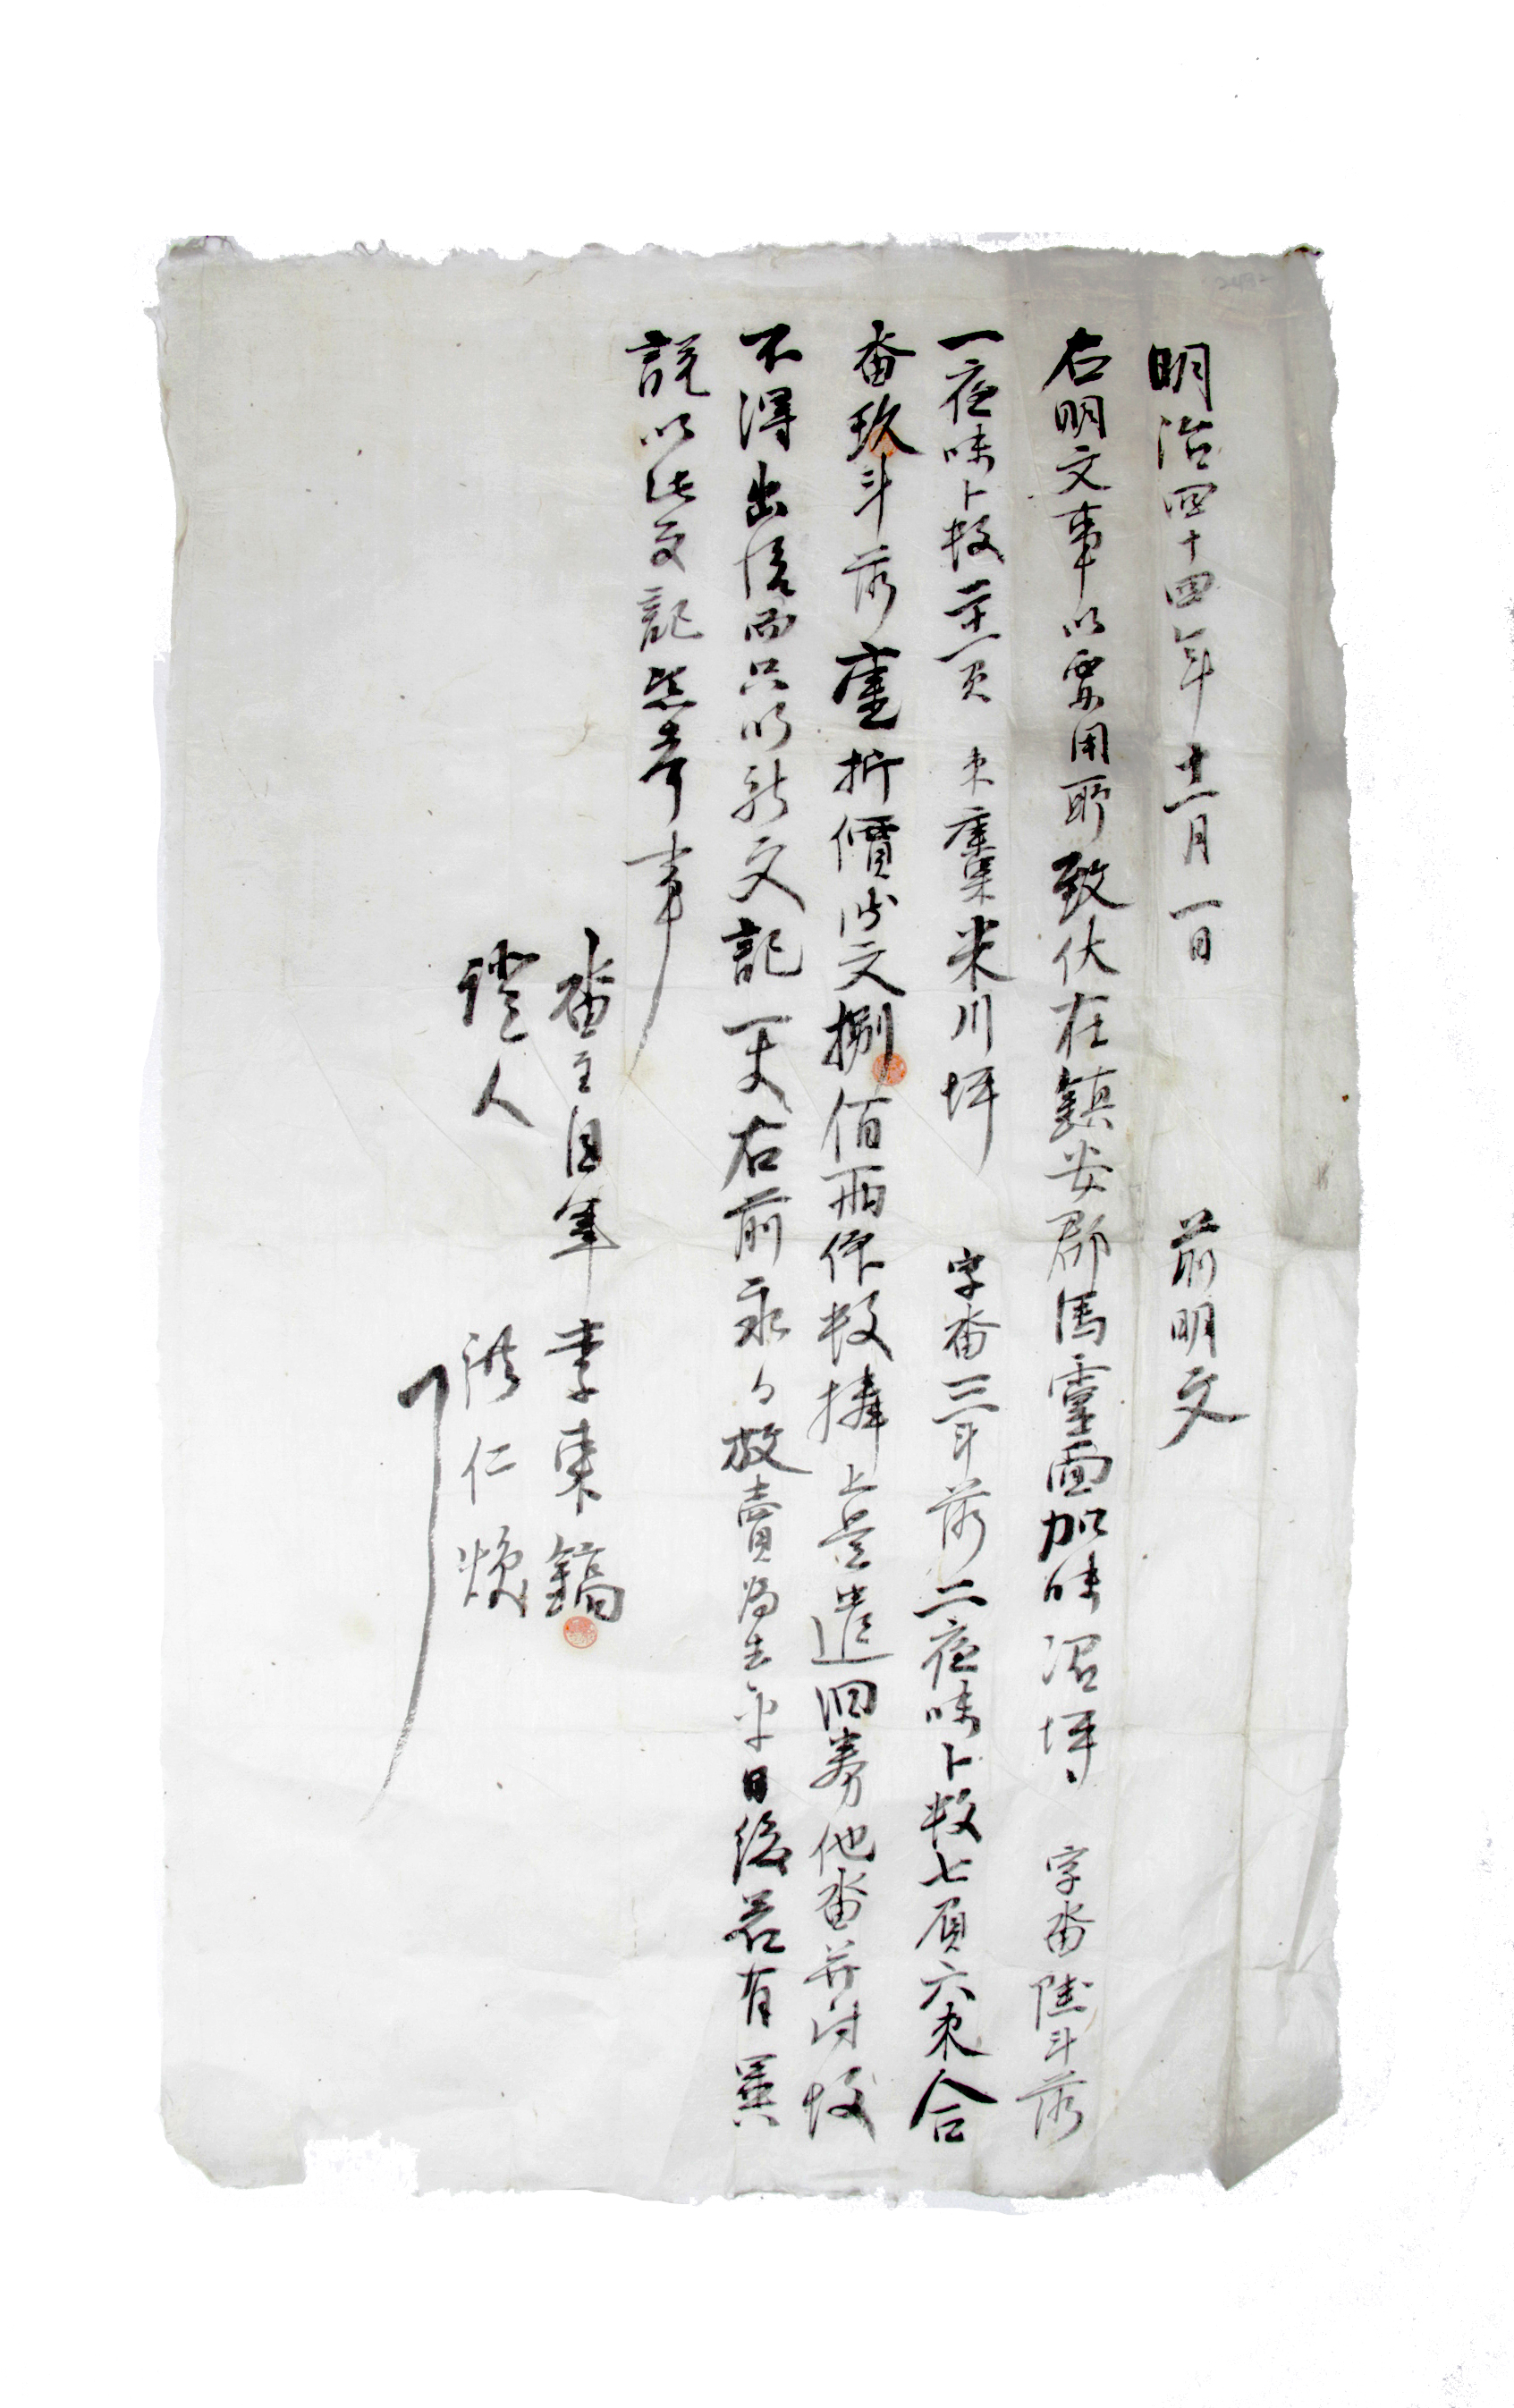 明治四十四年十二月一日 前明文
右明文事以要用所致伏在鎭安郡馬靈面加味沼坪 字畓陸斗落
一夜味卜數二十一負 束庫集米川坪 字畓三斗落二夜味卜數七負六束合
畓玖斗落㐣折價錢文捌佰兩依數捧上是遣旧券他畓并付故
不得出給而只以新文記一丈右前永々放賣爲去乎日後若有異
說以此文記憑考事
畓主自筆 李東鎬
證人 洪仁煥